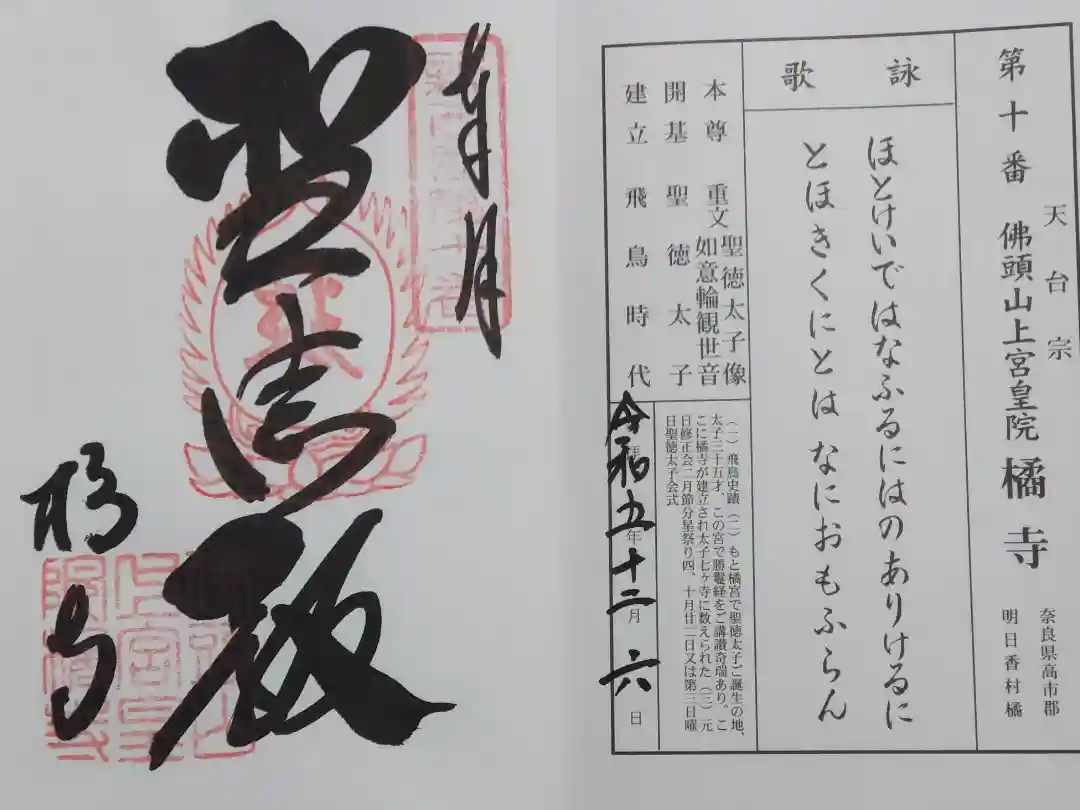 第十番 佛頭山上宮皇院 橘寺
天台宗
奈良県高市郡
明日香村橘
詠歌
ほとけいではなふるにはのありけるに
とほきくにとは なにおもふらん
本尊 重文 聖徳太子像
如意輪観世音
開基 聖徳太子
建立 飛鳥時代
(一)飛鳥史蹟(二)もと橘宮で聖徳太子ご誕生の地、
太子三十五才、この宮で勝鬘経をご講讃奇瑞あり。こ
こに橘寺が建立され太子七ヶ寺に数えられた(三)元
日修正会二月節分星祭り四、十月廿二日又は第三日曜
日聖徳太子会式
令和五年十二月六日
奉拝
聖倉殿
橘寺